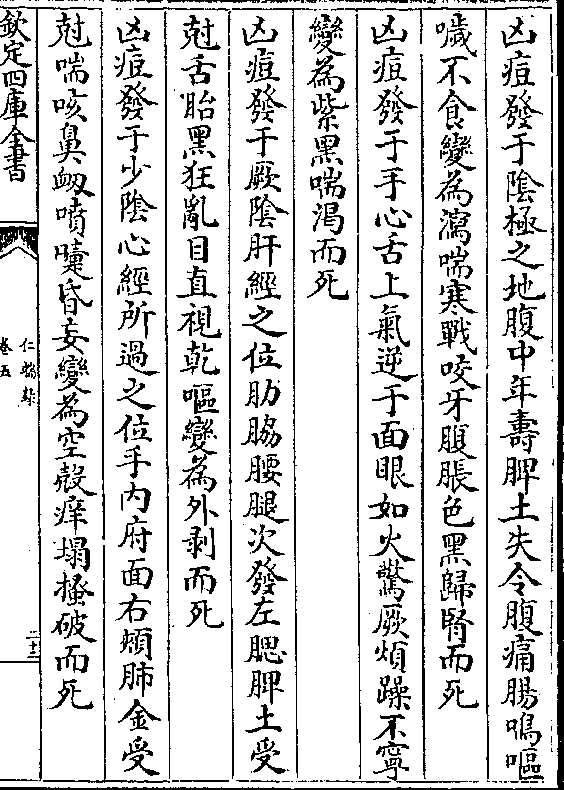 凶痘發于陰極之地腹中年壽脾土失令腹痛腸鳴嘔
噦不食變為瀉喘寒戰咬牙腹脹色黑歸腎而死
凶痘發于手心舌上氣逆于面眼如火驚厥煩躁不寧
變為紫黑喘渴而死
凶痘發于厥陰肝經之位肋脇腰腿次發左腮脾土受
尅舌胎黑狂亂目直視乾嘔變為外剥而死
凶痘發于少陰心經所過之位手內府面右頰肺金受
尅喘咳鼻衂噴嚏昏妄變為空殼痒塌搔破而死
欽定四庫全書
仁端錄
卷五